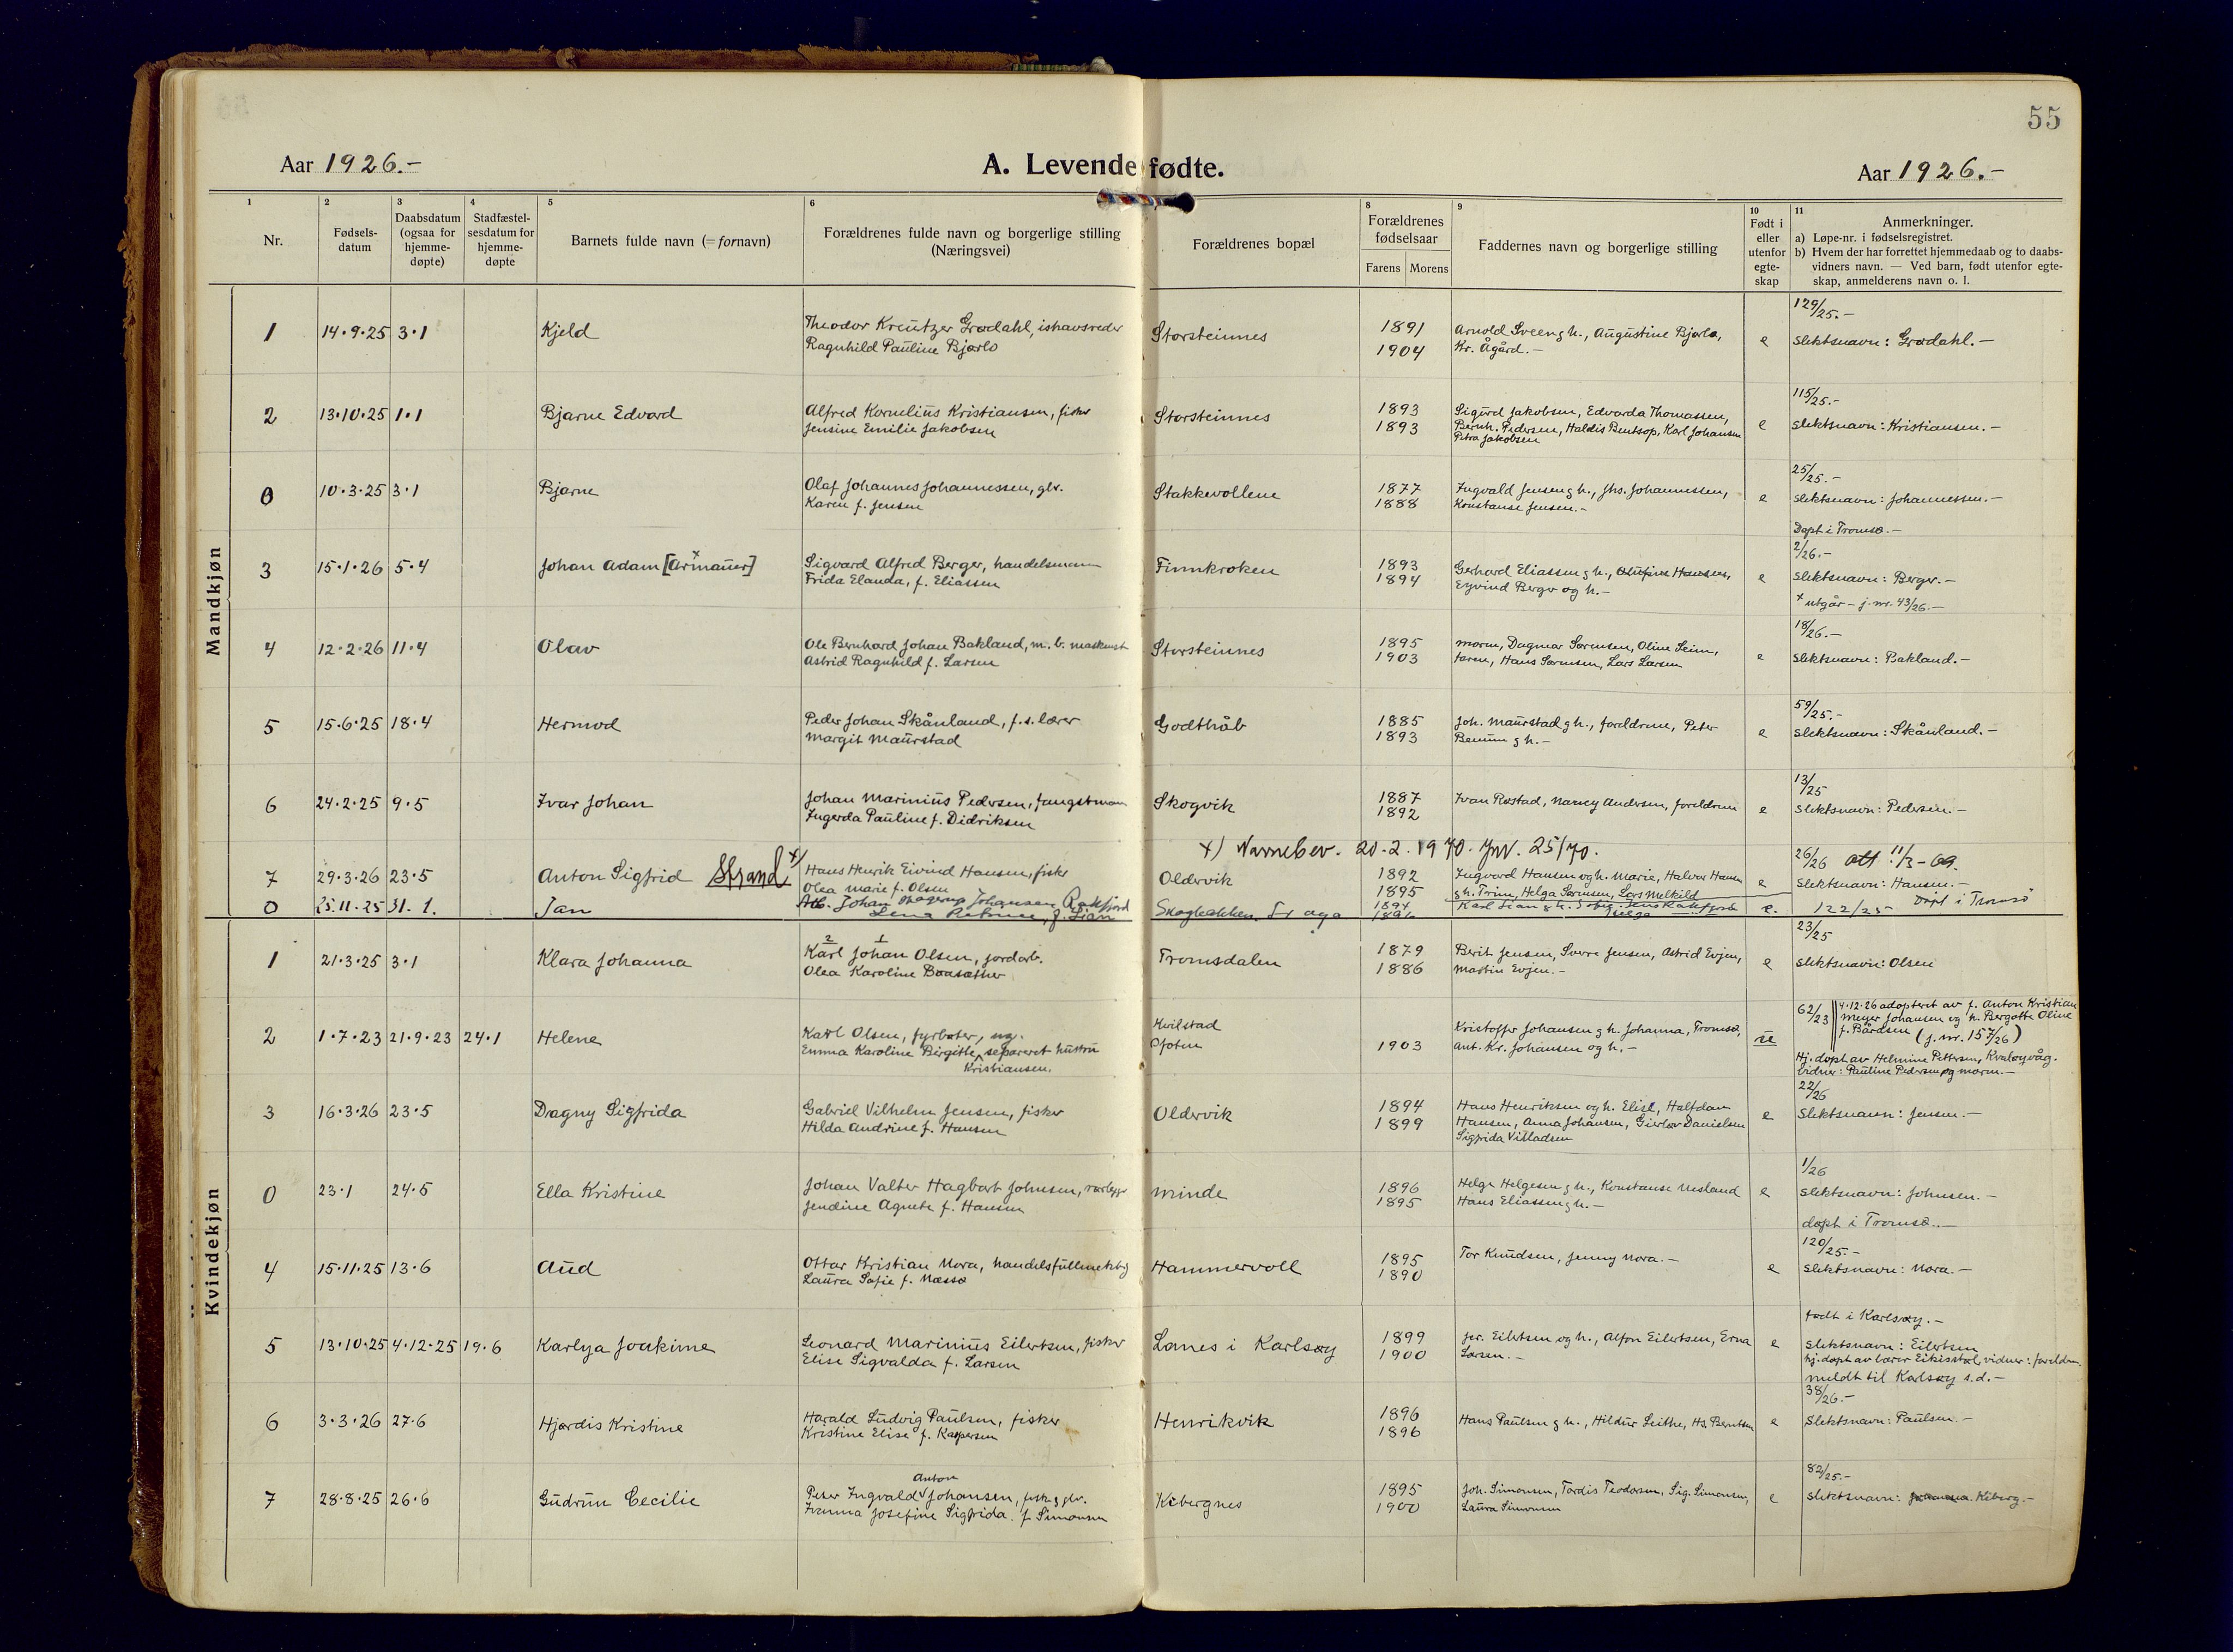 55
Aar 1926.-
A. Levende fødte.
Aar 1926.-
1 2 3 4 5 6 8 9 10 11
Nr.
Fødsels-
datum
Daabsdatum
(ogsaa for
hjemme-
døpte)
Stadfæstel-
sesdatum for
hjemme-
døpte
Barnets fulde navn (= fornavn)
Forældrenes fulde navn og borgerlige stilling
(Næringsvei)
Forældrenes bopæl
Forældrenes
fødselsaar
Farens Morens
Faddernes navn og borgerlige stilling
Født i
eller
utenfor
egte-
skap
Anmerkninger.
a) Løpe-nr. i fødselsregistret.
b) Hvem der har forrettet hjemmedaab og to daabs-
vidners navn. — Ved barn, født utenfor egte-
skap, anmelderens navn o. l.
Mandkjøn
129/25.-
1 14·9·25 3·1 Kjeld Theodor Kreutzer Grødahl, ishavsreder Storsteinnes 1891 Arnold Sveen g h., Augustine Bjørlo, e slektsnavn: Grødahl.-
Ragnhild Pauline Bjørlo 1904 Kr. Ågård.-
115/25.-
2 13·10·25 1·1 Bjarne Edvard Alfred Kornelius Kristiansen, fisker Storsteinnes 1893 Sigurd Jakobsen, Edvarda Thomassen, e slektsnavn: Kristiansen.-
Jensine Emilie Jakobsen 1893 Bernh. Pedersen, Haldis Bentsop, Karl Johansen
Petra Jakobsen
25/25.-
0 10·3·25 3·1 Bjarne Olaf Johannes Johannessen, glv. Stakkevollene 1877 Ingvald Jensen g h., Jhs. Johannessen, e slektsnavn: Johannessen.-
Karen f. Jensen 1888 Konstanse Jensen.-
Døpt i Tromsø.-
2/26.-
3 15·1·26 5·4 Johan Adam [Armauer] x Sigvard Alfred Berger, handelsmann Finnkroken 1893 Gerhard Eliassen g h., Olufine Hansen, e slektsnavn: Berger.-
Frida Elanda, f. Eliassen 1894 Eyvind Berger og h.-
x utgår - j.nr. 43/26.-
18/26.-
4 12·2·26 11·4 Olav Ole Bernhard Johan Bakland, m. b. maskinist Storsteinnes 1895 moren, Dagmar Sørensen, Oline Seim, e slektsnavn: Bakland.-
Astrid Ragnhild f. Larsen 1903 faren, Hans Sørensen, Lars Larsen
59/25.-
5 15·6·25 18·4 Hermod Peder Johan Skånland, f.s. lærer Godthåb 1885 Joh. Maurstad g h., foreldrene, Peter e slektsnavn: Skånland.-
Margit Maurstad 1893 Benum g h.-
13/25
6 24·2·25 9·5 Ivar Johan Johan Marinius Pedersen, fangstmann Skogvik 1887 Ivan Røstad, Nancy Andersen, foreldrene e slektsnavn: Pedersen.-
Ingerda Pauline f. Didriksen 1892
x) Navnebev. 20-2.1970. Jnr. 25/70.
26/26 att. 11/3-69.
7 29·3·26 23·5 Anton Sigfrid Strand x) Hans Henrik Eivind Hansen, fisker Oldervik 1892 Ingvard Hansen og h. Marie, Halvor Hansen e slektsnavn: Hansen.-
Olea Marie f. Olsen 1895 g h. Trine, Helga Sørensen, Lars Melkild
0 25.11.25 31. 1. Jan Arb. Johan Johansen Rakfjord Skogbakken 1894 Karl Lian g h. e. 122/25 Døpt i Tromsø
f. Lian 1896 Helga
Kvindekjøn
23/25
1 21·3·25 3·1 Klara Johanna Karl 2 Johan 1 Olsen, jordarb. Tromsdalen 1879 Berit Jensen, Sverre Jensen, Astrid Evjen, e slektsnavn: Olsen
Olea Karoline Baasæther 1886 Martin Evjen.-
2 1·7·23 21·9·23 24·1 Helene Karl Olsen, fyrbøter, ug. Kvilstad Kristoffer Johansen g h. Johanna, Tromsø, ue 62/23 4·12·26 adoptert av f. Anton Kristian
Emma Karoline Birgitte, separert hustru Ofoten 1903 Ant. Kr. Johansen og h.- Meyer Johansen og h. Bergotte Oline
Kristiansen. f. Bårdsen (j.nr. 157/26)
Hj. døpt av Helmine Pettersen, Kvaløyvåg.
Vidner: Pauline Pedersen og moren.-
22/26
3 16·3·26 23·5 Dagny Sigfrida Gabriel Vilhelm Jensen, fisker Oldervik 1894 Hans Henriksen og h. Elise, Halfdan e slektsnavn: Jensen.-
Hilda Andrine f. Hansen 1899 Hansen, Anna Johansen, Gierløv Danielsen
Sigfrida Villadsen
1/26
0 23·1 24·5 Ella Kristine Johan Valter Hagbart Johnsen, rørlegger Minde 1896 Helge Helgesen g h., Konstanse Nesland e slektsnavn: Johnsen.-
Jendine Agnete f. Hansen 1895 Hans Eliassen g h.-
døpt i Tromsø.-
120/25.-
4 15·11·25 13·6 Aud Ottar Kristian Nora, handelsfullmektig Hammervoll 1895 Tor Knudsen, Jenny Nora.- e slektsnavn: Nora.-
Laura Sofie f. Næssø 1890
født i Karlsøy.-
5 13·10·25 4·12·25 19·6 Karlya Joakime Leonard Marinius Eilertsen, fisker Lanes i Karlsøy 1899 Jer. Eilertsen og h., Alfon Eilertsen, Erna e slektsnavn: Eilertsen
Elise Sigvalda f. Larsen 1900 Larsen.- hj. døpt av lærer Eikisstøl, vidner: foreldr.
meldt til Karlsøy s.d.-
38/26.-
6 3·3·26 27·6 Hjørdis Kristine Harald Ludvig Paulsen, fisker Henrikvik 1896 Hans Paulsen g h., Hildur Leithe, Hs. Berntsen e slektsnavn: Paulsen.-
Kristine Elise f. Kaspersen 1896
82/25.-
Anton
7 28·8·25 26·6 Gudrun Cecilie Peter Ingvald Johansen, fisk. g glv. Kibergnes 1895 Joh. Simonsen, Tordis Teodorsen, Sig. Simonsen, e slektsnavn: Kiberg.-
Ivanna Josefine Sigfrida f. Simonsen 1900 Laura Simonsen